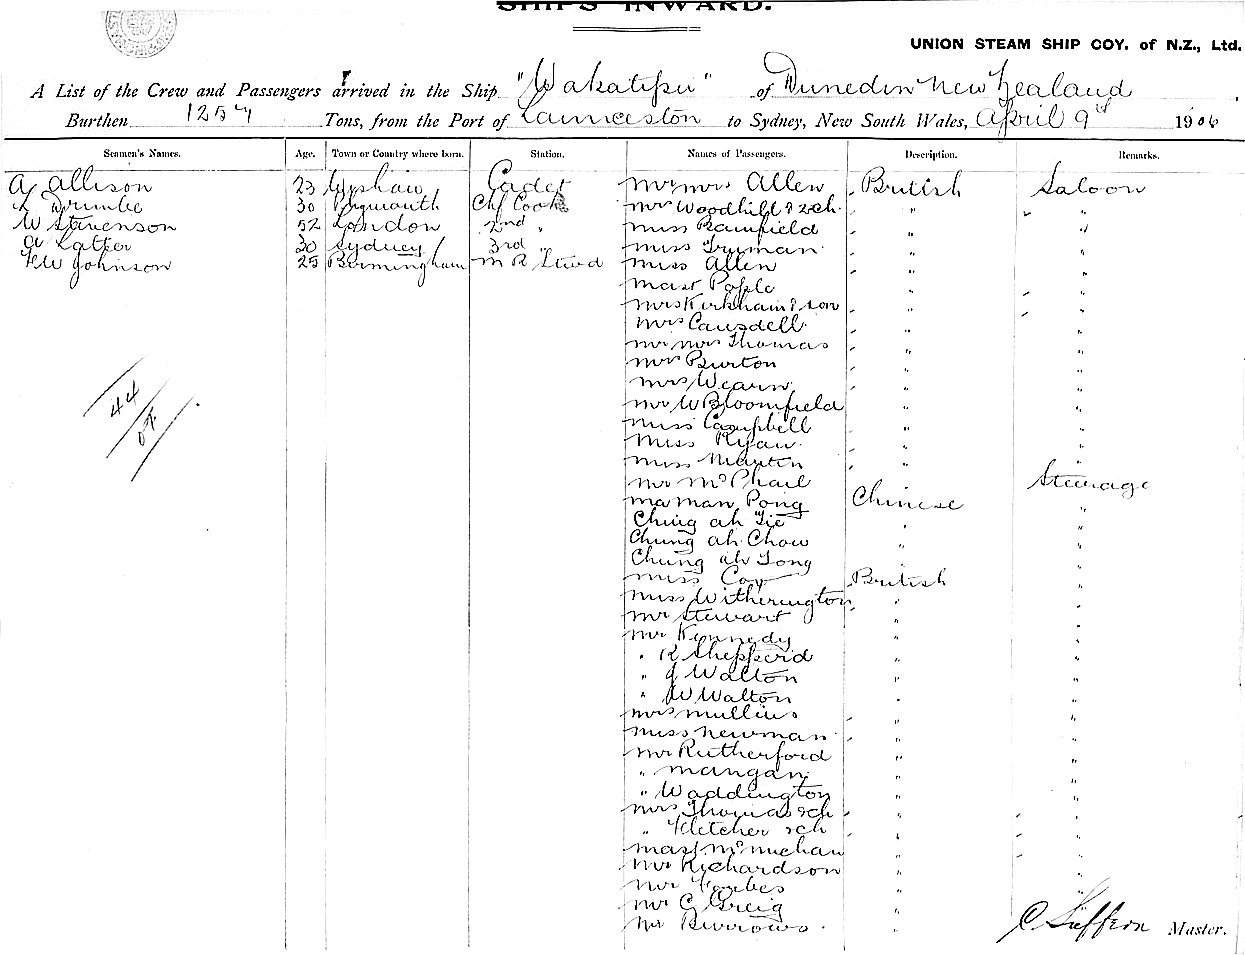 SHIPS INWARD.
UNION STEAM SHIP COY. of N.Z., Ltd.
A List of the Crew and Passengers arrived in the Ship "Wakatipu" of Dunedin New Zealand
Burthen 1257 Tons, from the Port of Launceston to Sydney, New South Wales, April 9th 1906
Seamen's Names. Age. Town or Country where born. Station. Names of Passengers. Description. Remarks.
A Allison 23 Cadet Mr Mrs Allen British Saloon
30 Chf Cook Mrs Woodhill & 2 ch " "
W Stevenson 52 London 2nd " Miss Bamfield " "
A Latter 30 Sydney 3rd " Miss Truman " "
FW Johnson 25 Birmingham M R Stwd Miss Allen " "
Mast Pople " "
Mrs Kirkham & son " "
Mrs Causdell " "
Mr Mrs Thomas " "
Mrs Burton " "
Mrs Wearn " "
Mr W Bloomfield " "
Miss Campbell " "
Miss Ryan " "
Miss Martin " "
Mr McPhail Steerage
Ma Man Pong Chinese "
Ching ah Tie " "
Chung ah Chow " "
Chung ah Tong " "
Miss Cox British "
Miss Witherington " "
Mr Stewart " "
Mr Kennedy " "
" R Shepperd " "
" J Walton " "
" W Walton " "
Mrs Mullins " "
Miss Newman " "
Mr Rutherford " "
" Mangan " "
" Waddington " "
Mrs Thomas & ch " "
" Fletcher & ch " "
Mast " "
Mr Richardson " "
Mr Forbes " "
Mr C Greig "
Mr Burrows "
44
07
Master.